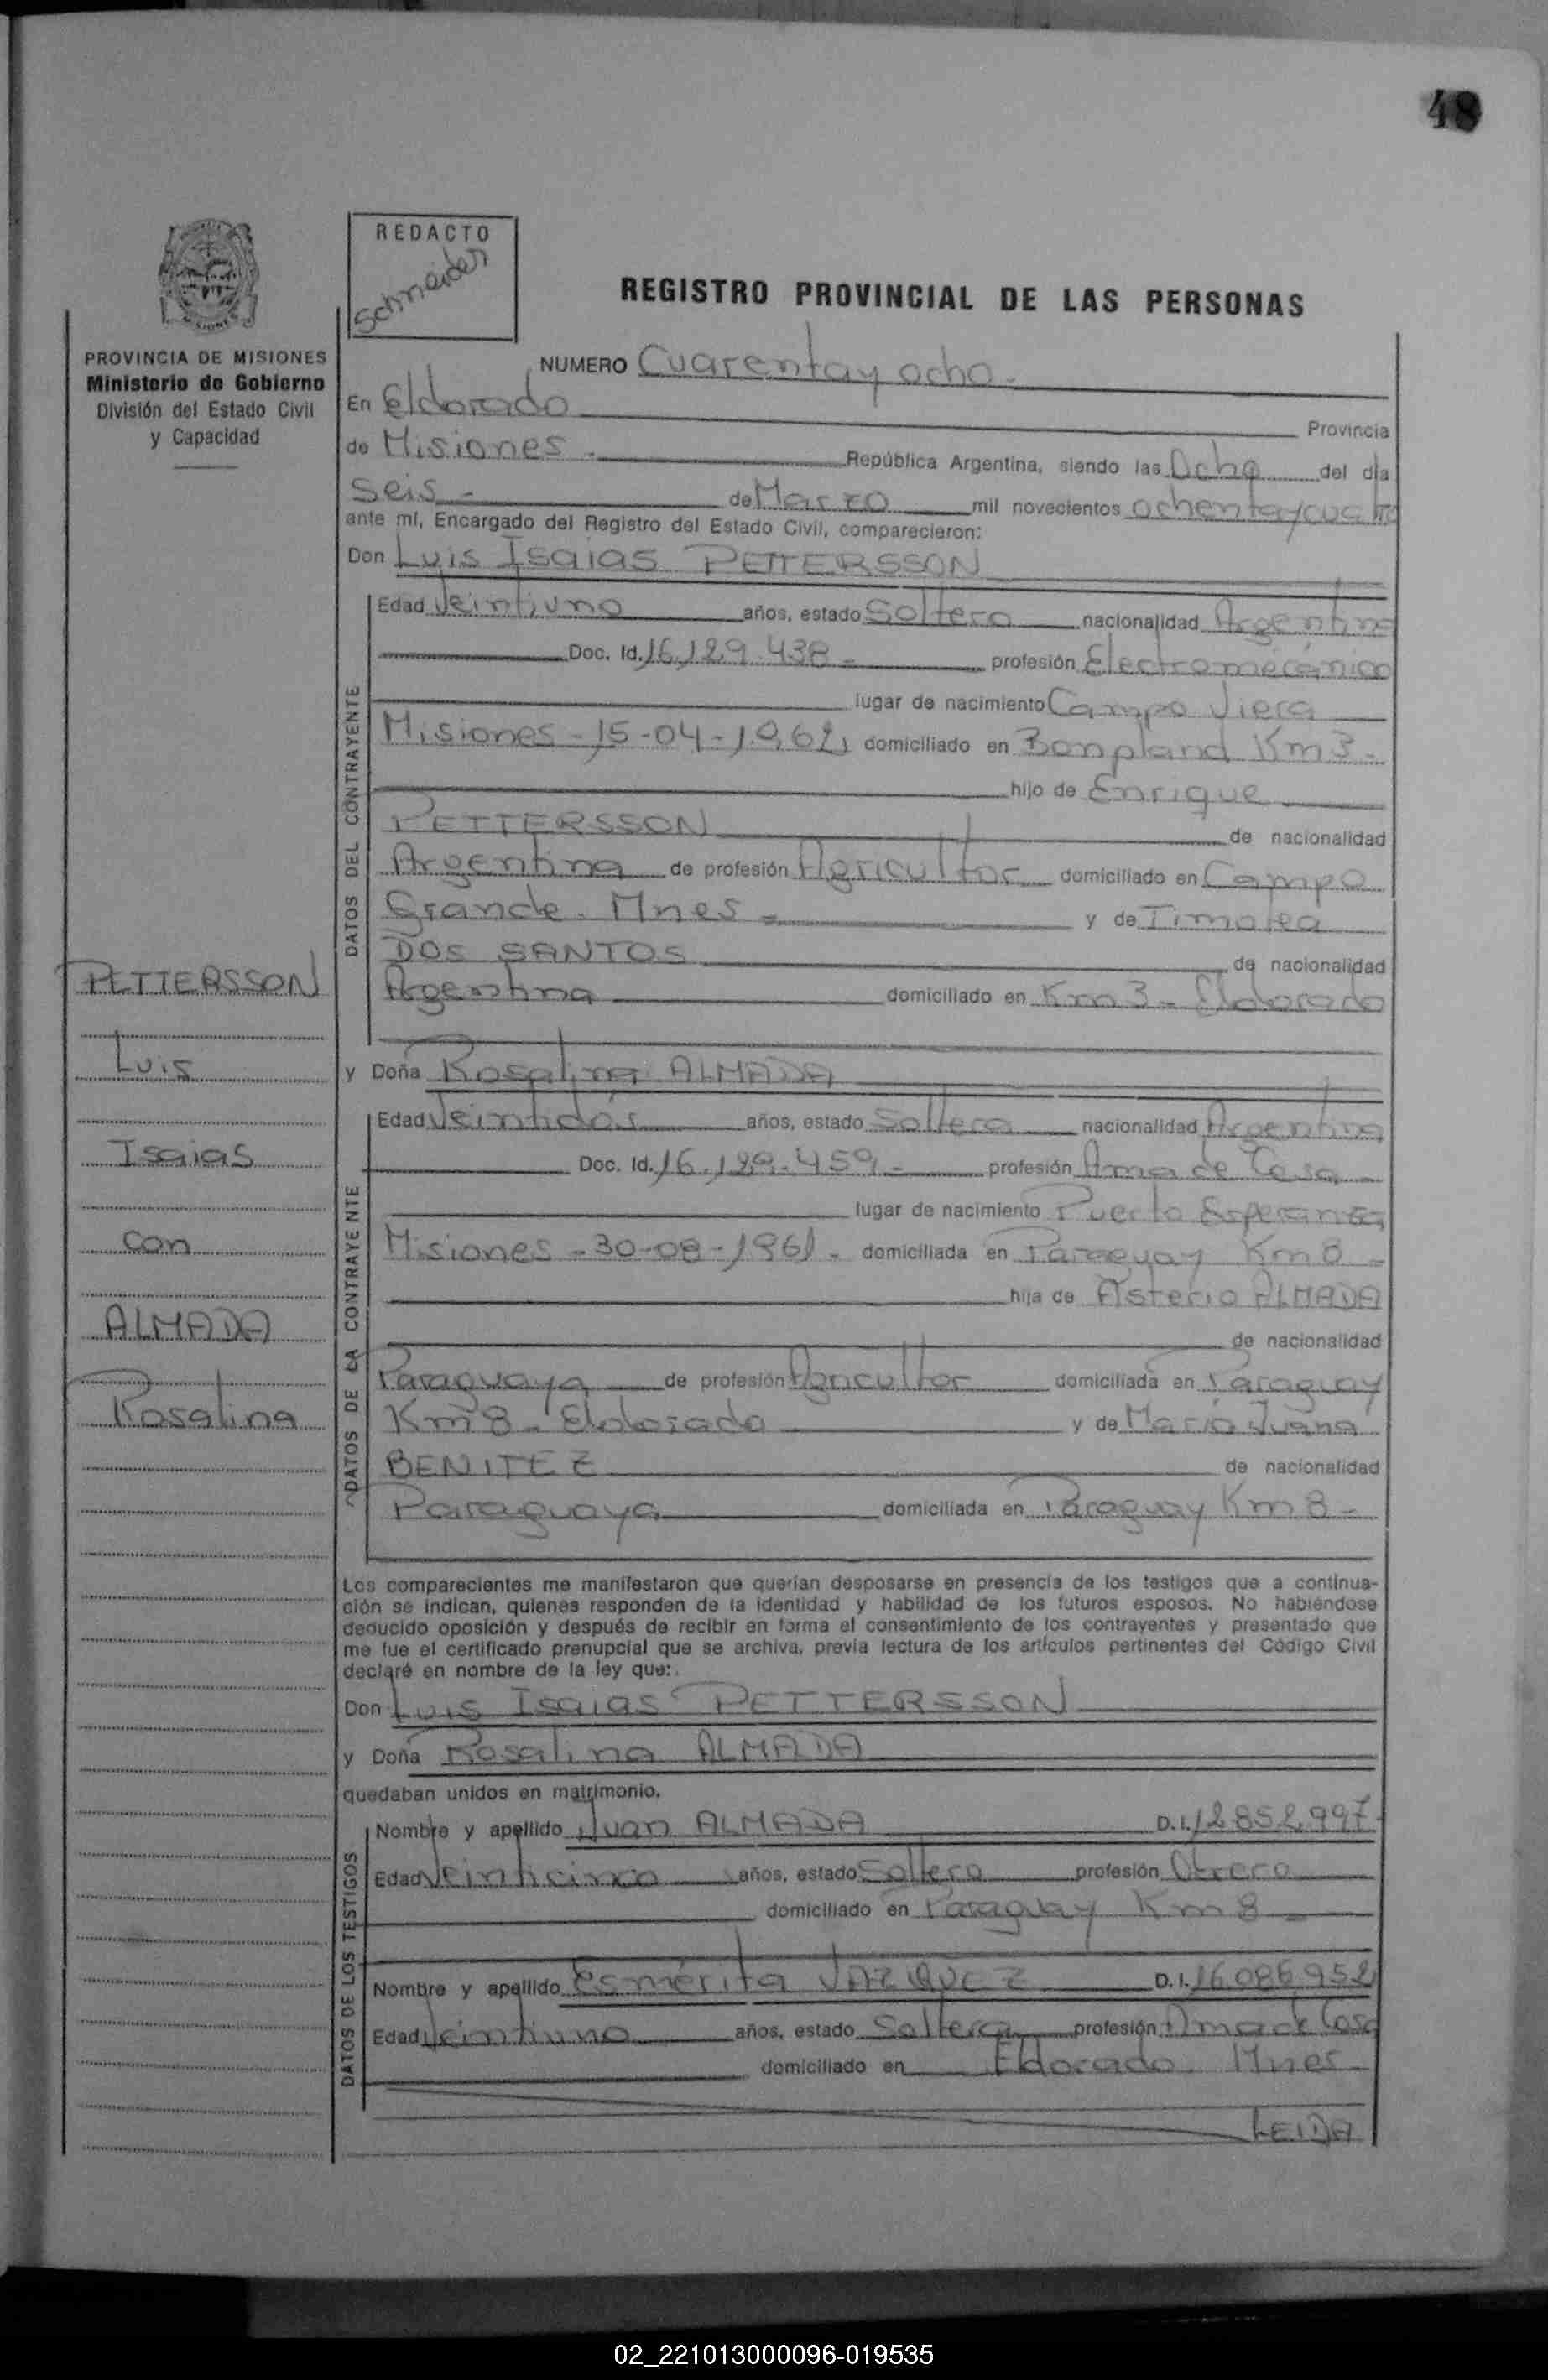 48
REDACTO
Schneider
REGISTRO PROVINCIAL DE LAS PERSONAS
PROVINCIA DE MISIONES
Ministerio de Gobierno
División del Estado Civil
y Capacidad
NUMERO Cuarenta y ocho -
En Eldorado Provincia
de Misiones - República Argentina, siendo las Ocho del día
Seis - de Marzo mil novecientos ochenta y cuatro
ante mí, Encargado del Registro del Estado Civil, comparecieron:
Don Luis Isaias PETTERSSON
Edad Veintiuno años, estado Soltero nacionalidad Argentina
Doc. Id. 16.129.438 - profesión Electromecánico
lugar de nacimiento Campo Viera
Misiones - 15-04-1962, domiciliado en Bonpland Km 3 -
hijo de Enrique
PETTERSSON de nacionalidad
Argentina de profesión Agricultor domiciliado en Campo
Grande. Mnes - y de Timotea
DOS SANTOS de nacionalidad
Argentina domiciliado en Km 3 - Eldorado
y Doña Rosalina ALMADA
Edad Veintidós años, estado Soltera nacionalidad Argentina
Doc. Id. 16.129.459 - profesión Ama de Casa -
lugar de nacimiento Puerto Esperanza
Misiones - 30-08-1961 - domiciliada en Paraguay Km 8 -
hija de Asterio ALMADA
de nacionalidad
Paraguaya de profesión Agricultor domiciliada en Paraguay
Km 8 - Eldorado y de María Juana
BENITEZ de nacionalidad
Paraguaya domiciliada en Paraguay Km 8 -
Los comparecientes me manifestaron que querían desposarse en presencia de los testigos que a continua-
ción se indican, quienes responden de la identidad y habilidad de los futuros esposos. No habiéndose
deducido oposición y después de recibir en forma el consentimiento de los contrayentes y presentado que
me fue el certificado prenupcial que se archiva, previa lectura de los artículos pertinentes del Código Civil
declaré en nombre de la ley que:
Don Luis Isaias PETTERSSON
y Doña Rosalina ALMADA
quedaban unidos en matrimonio.
Nombre y apellido Juan ALMADA D.I. 12852997-
Edad Veinticinco años, estado Soltero profesión Obrero
domiciliado en Paraguay Km 8 -
Nombre y apellido Esmérita VAZQUEZ D.I. 16.086952
Edad Veintiuno años, estado Soltera profesión Ama de Casa
domiciliado en Eldorado. Mnes -
LEIDA
DATOS DEL CONTRAYENTE
DATOS DE LA CONTRAYENTE
DATOS DE LOS TESTIGOS
PETTERSSON
Luis
Isaias
con
ALMADA
Rosalina
02_221013000096-019535